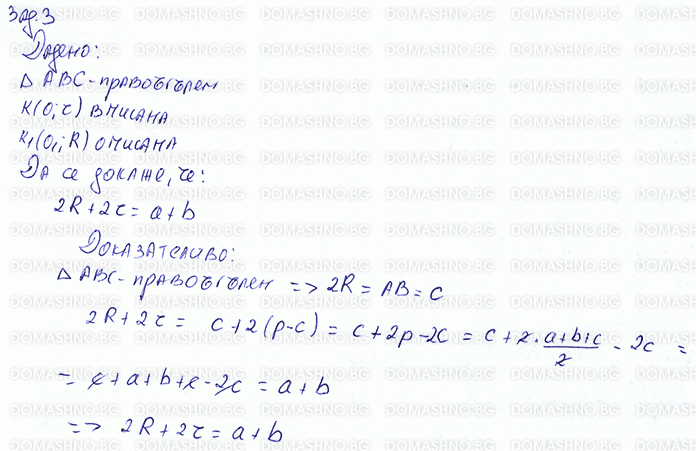 Зад.3
Дадено:
Δ ABC - правоъгълен
k(O; r) вписана
k₁(O₁; R) описана
Да се докаже, че:
2R + 2r = a + b
Доказателство:
Δ ABC - правоъгълен => 2R = AB = c
2R + 2r = c + 2(p - c) = c + 2p - 2c = c + 2 . (a + b + c)/2 - 2c =
= c + a + b + c - 2c = a + b
=> 2R + 2r = a + b